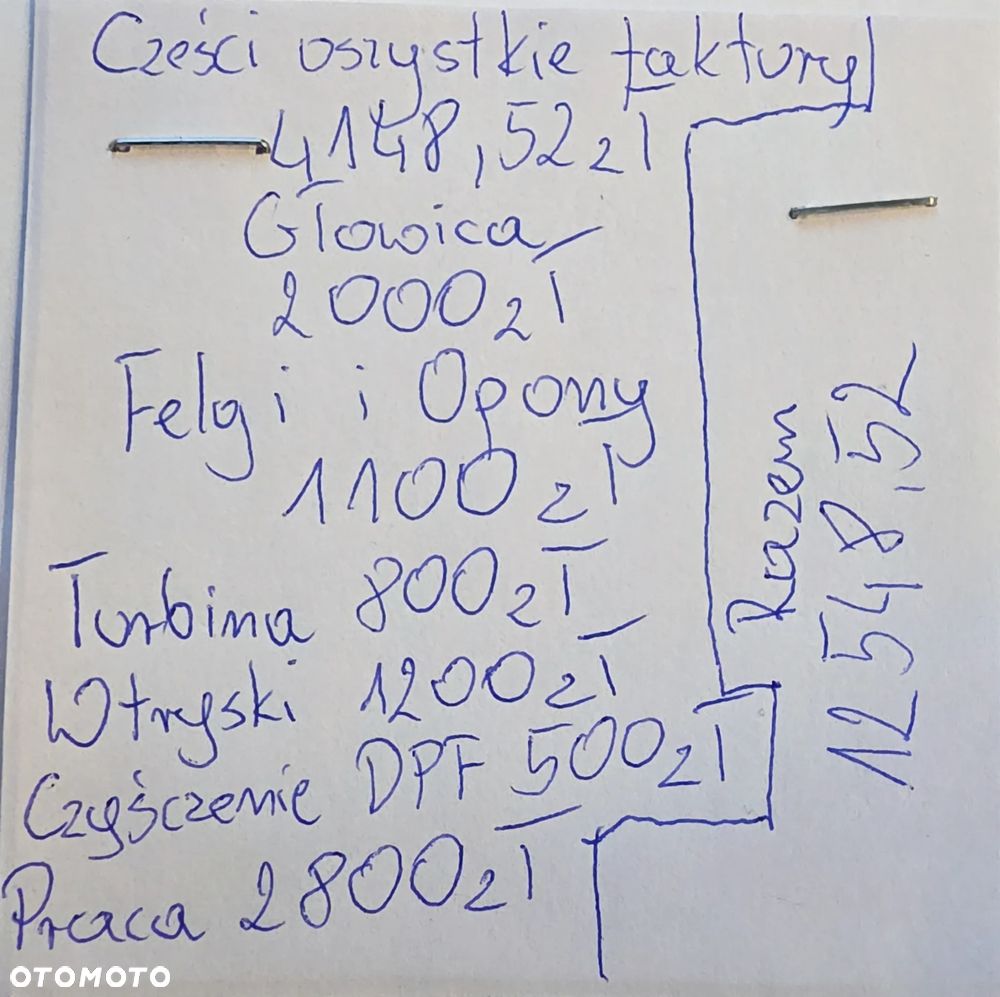 Cześci wszystkie faktury
4148,52 zł
Głowica
2000 zł
Felgi i Opony
1100 zł
Turbina 800 zł
Wtryski 1200 zł
Czyśczenie DPF 500 zł
Praca 2800 zł
Razem
12548,52
OTOMOTO